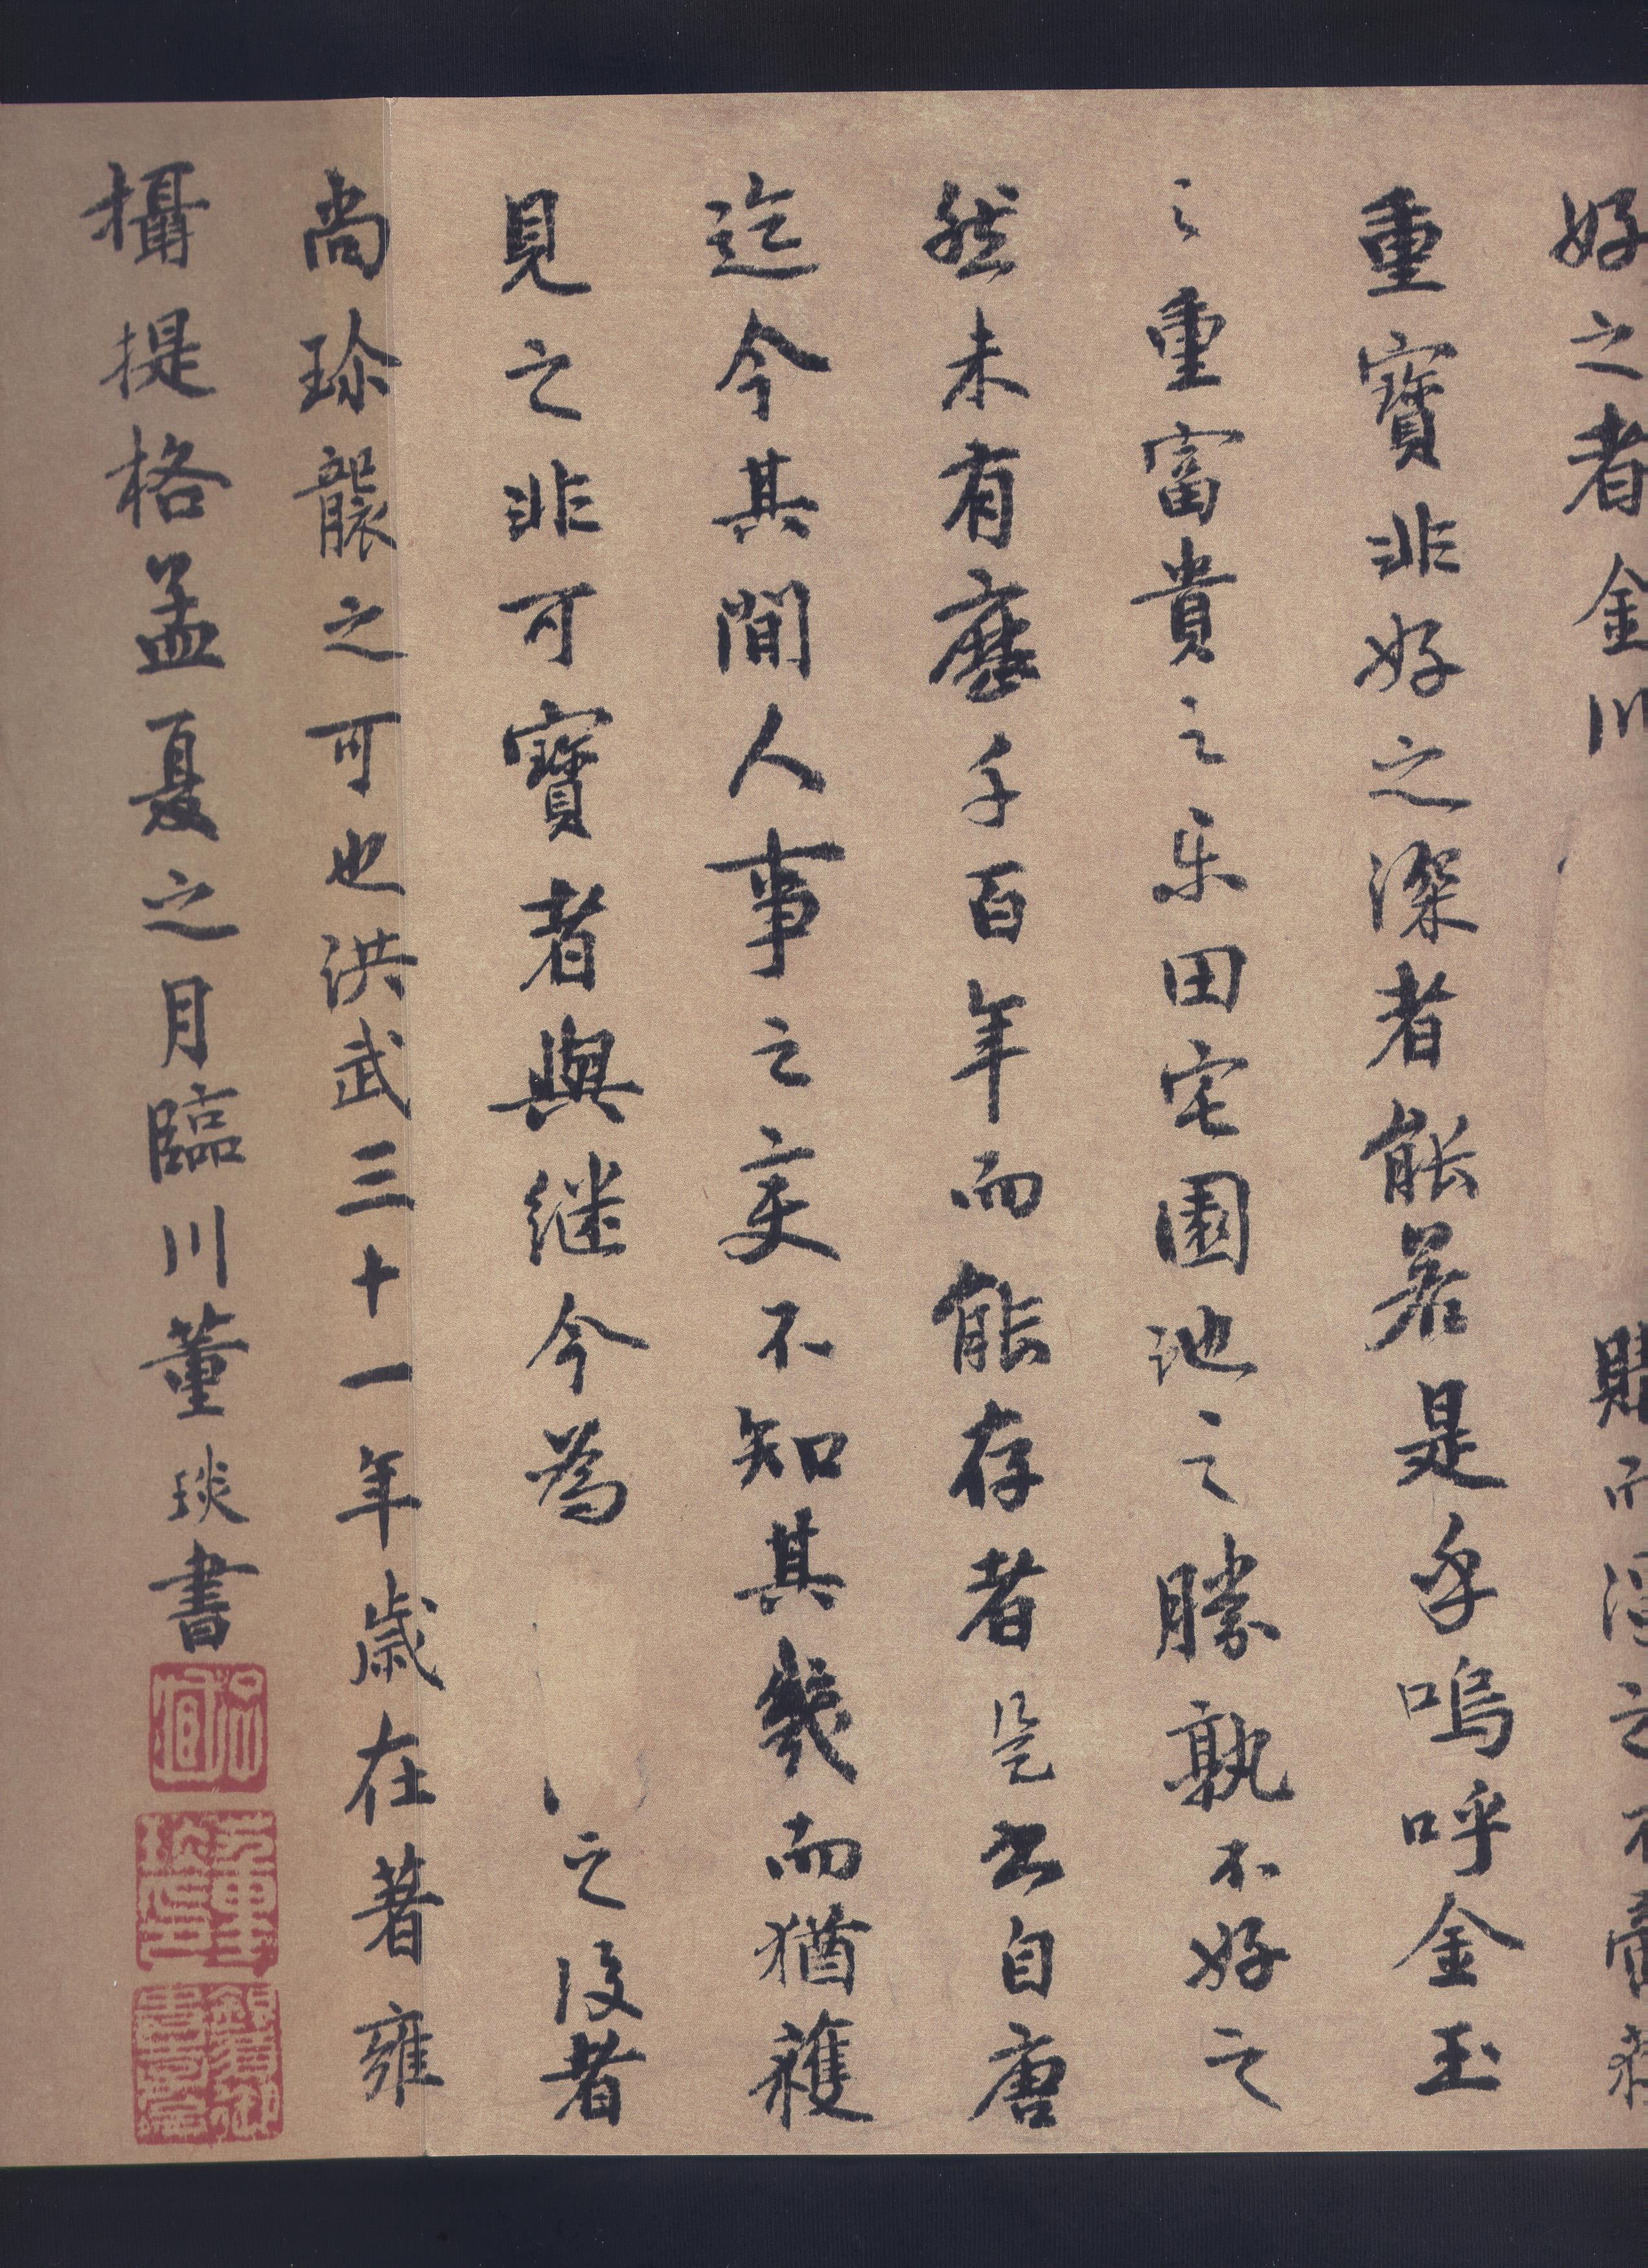 好之者金川購而得之不啻獲
重寶非好之深者能若是乎嗚呼金玉
之重富貴之乐田宅園池之勝孰不好之
然未有歷千百年而能存者是書自唐
迄今其間人事之変不知其幾而猶獲
見之非可寶者與继今為之後者
尚珎襲之可也洪武三十一年歲在著雍
攝提格孟夏之月臨川董琰書